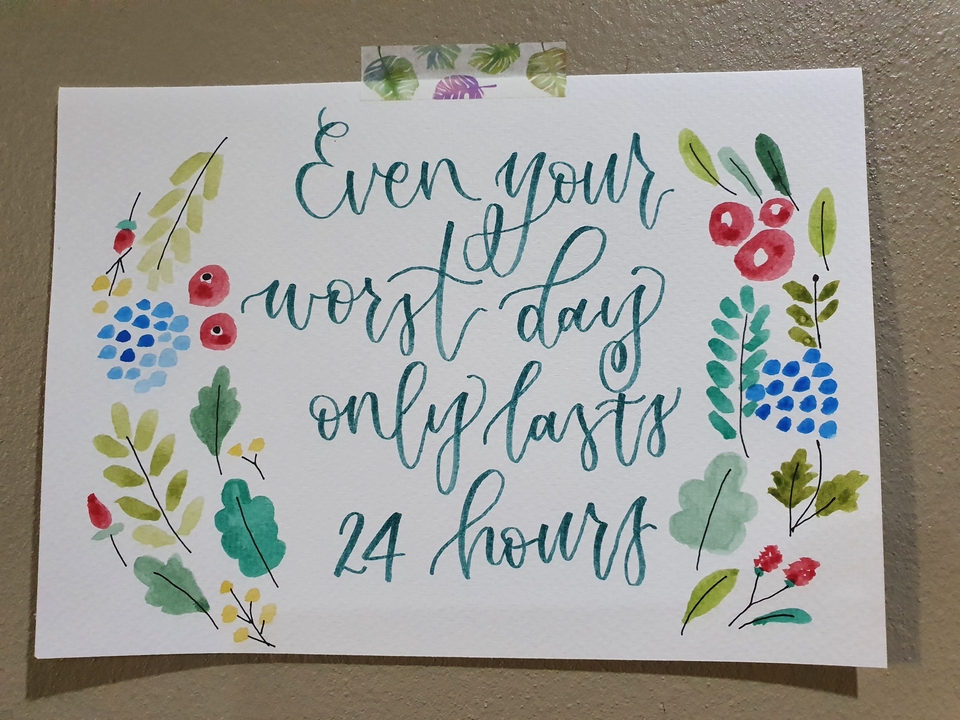 Even your
worst day
only lasts
24 hours